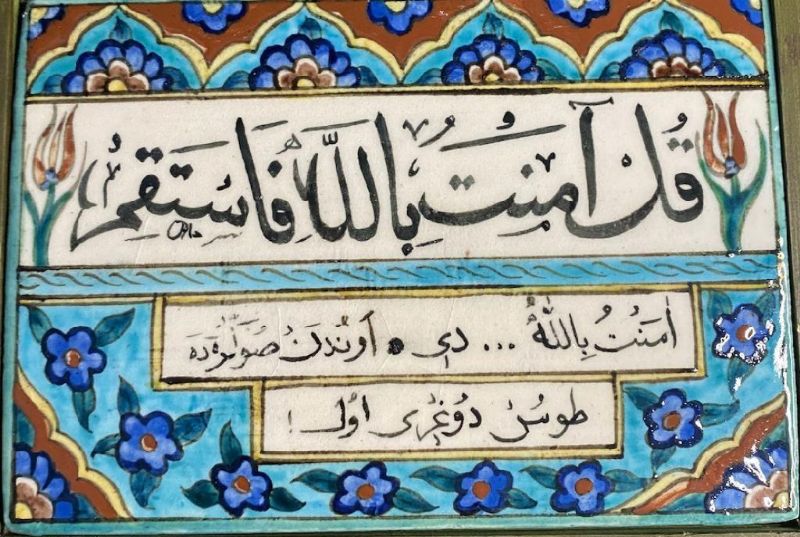 قُلْ آمَنْتُ بِاللّٰهِ فَاسْتَقِمْ
اٰمَنْتُ بِاللّٰهِ ... دي • اوندن صوڭره ده
طوس دوغرى اول!